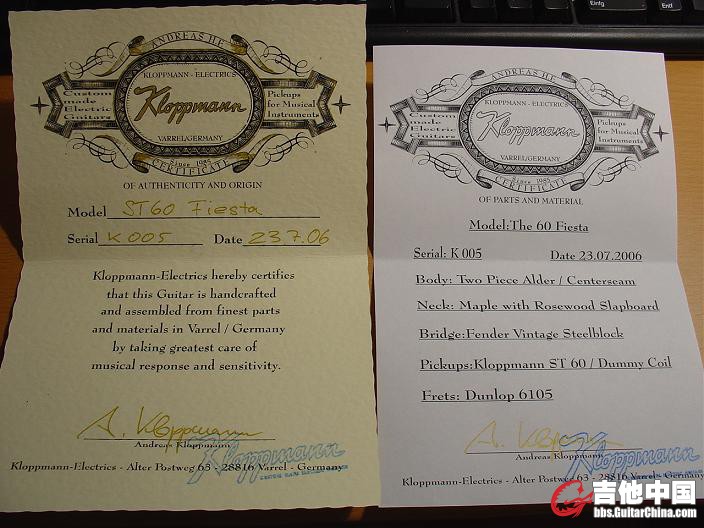 ANDREAS H.F.
KLOPPMANN - ELECTRICS
Custom
made
Electric
Guitars
Kloppmann
Pickups
for Musical
Instruments
VARREL/GERMANY
Since 1985
CERTIFICATE
OF AUTHENTICITY AND ORIGIN
Model ST60 Fiesta
Serial K005 Date 23.7.06
Kloppmann-Electrics hereby certifies
that this Guitar is handcrafted
and assembled from finest parts
and materials in Varrel / Germany
by taking greatest care of
musical response and sensitivity.
A. Kloppmann
Andreas Kloppmann
Kloppmann
Kloppmann-Electrics - Alter Postweg 63 - 28816 Varrel - Germany
ANDREAS H.F.
KLOPPMANN - ELECTRICS
Custom
made
Electric
Guitars
Kloppmann
Pickups
for Musical
Instruments
VARREL/GERMANY
Since 1985
CERTIFICATE
OF PARTS AND MATERIAL
Model:The 60 Fiesta
Serial: K 005 Date 23.07.2006
Body: Two Piece Alder / Centerseam
Neck: Maple with Rosewood Slapboard
Bridge:Fender Vintage Steelblock
Pickups:Kloppmann ST 60 / Dummy Coil
Frets: Dunlop 6105
A. Kloppmann
Andreas Kloppmann
Kloppmann
Kloppmann-Electrics - Alter Postweg 63 - 28816 Varrel - Germany
吉他中国
bbs.GuitarChina.com